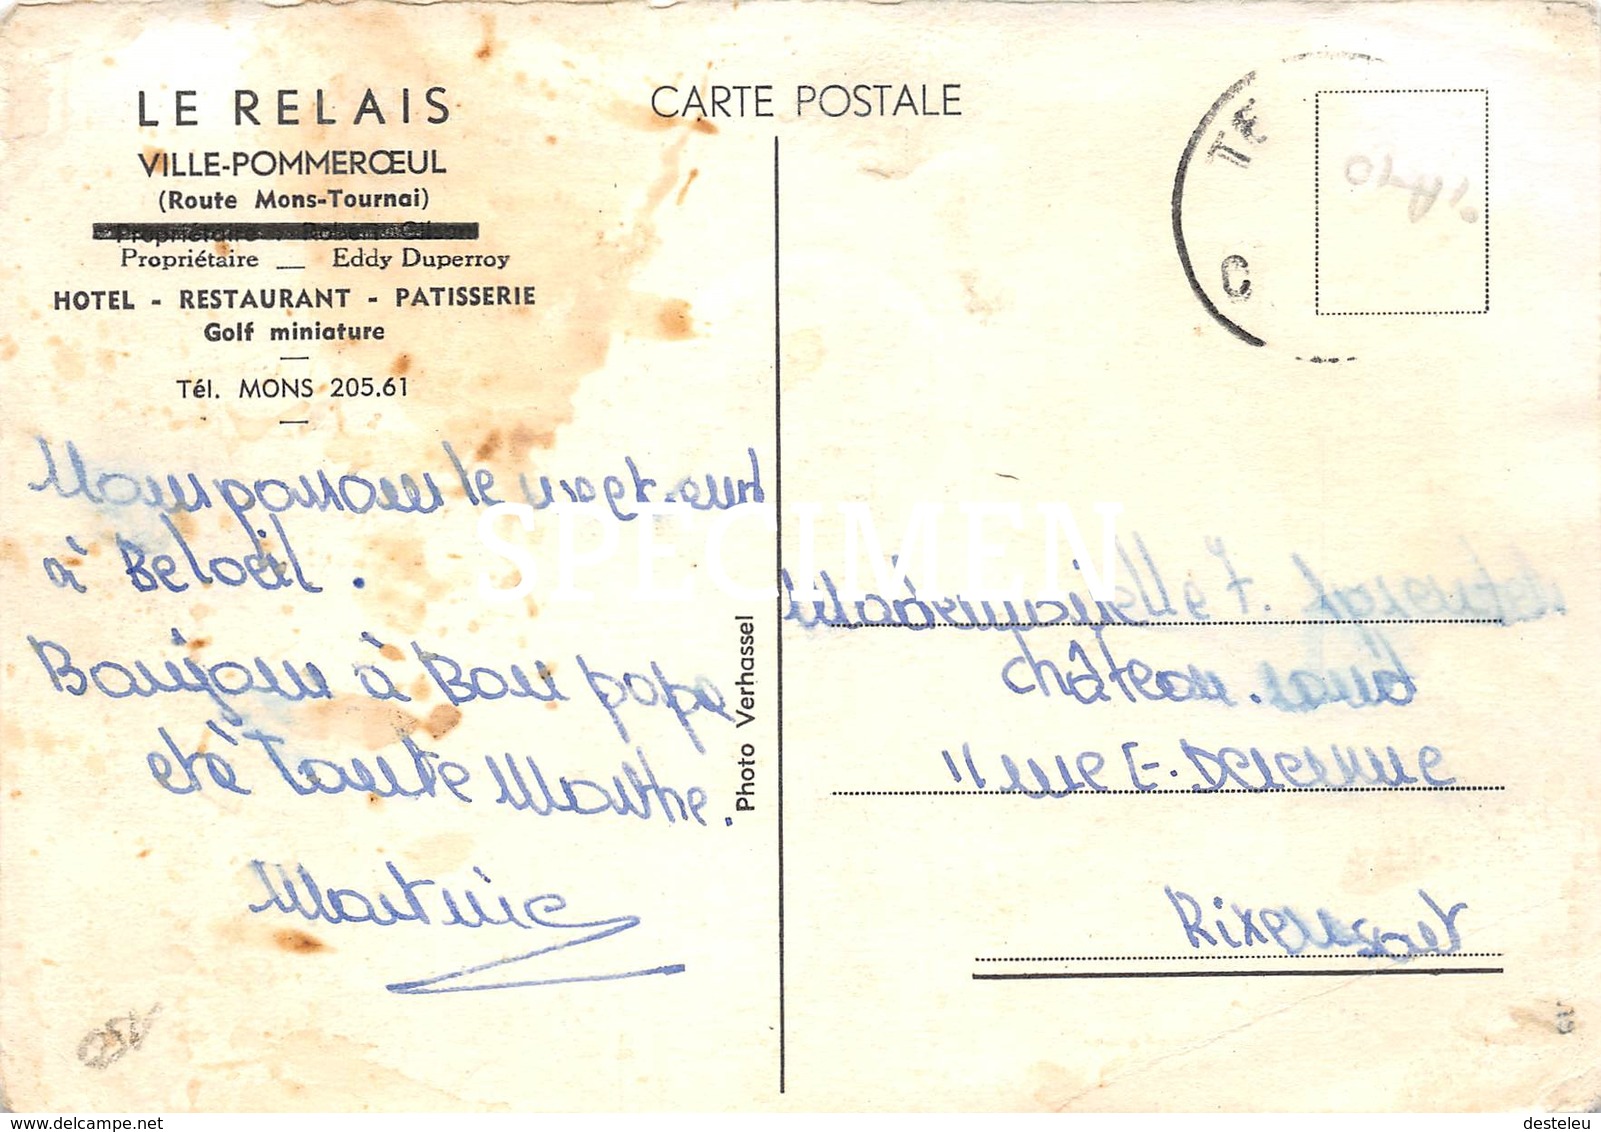 LE RELAIS
VILLE-POMMERŒUL
(Route Mons-Tournai)
Propriétaire
Propriétaire __ Eddy Duperroy
HOTEL - RESTAURANT - PATISSERIE
Golf miniature
Tél. MONS 205.61
CARTE POSTALE
TE
C
Nous passons le week-end
à Beloeil.
Bonjour à Bon papa
et à Tante Marthe.
Martine
Photo Verhassel
SPECIMEN
Mademoiselle F.
château. rond
11 rue E.
Rixensart
delcampe.net
desteleu